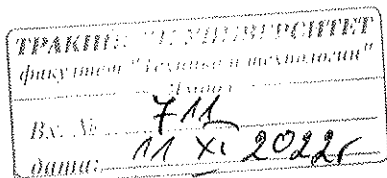 ТРАКИЙСКИ УНИВЕРСИТЕТ
факултет "Техника и технологии"
Ямбол
Вх. № 711
дата: 11 XI 2022г